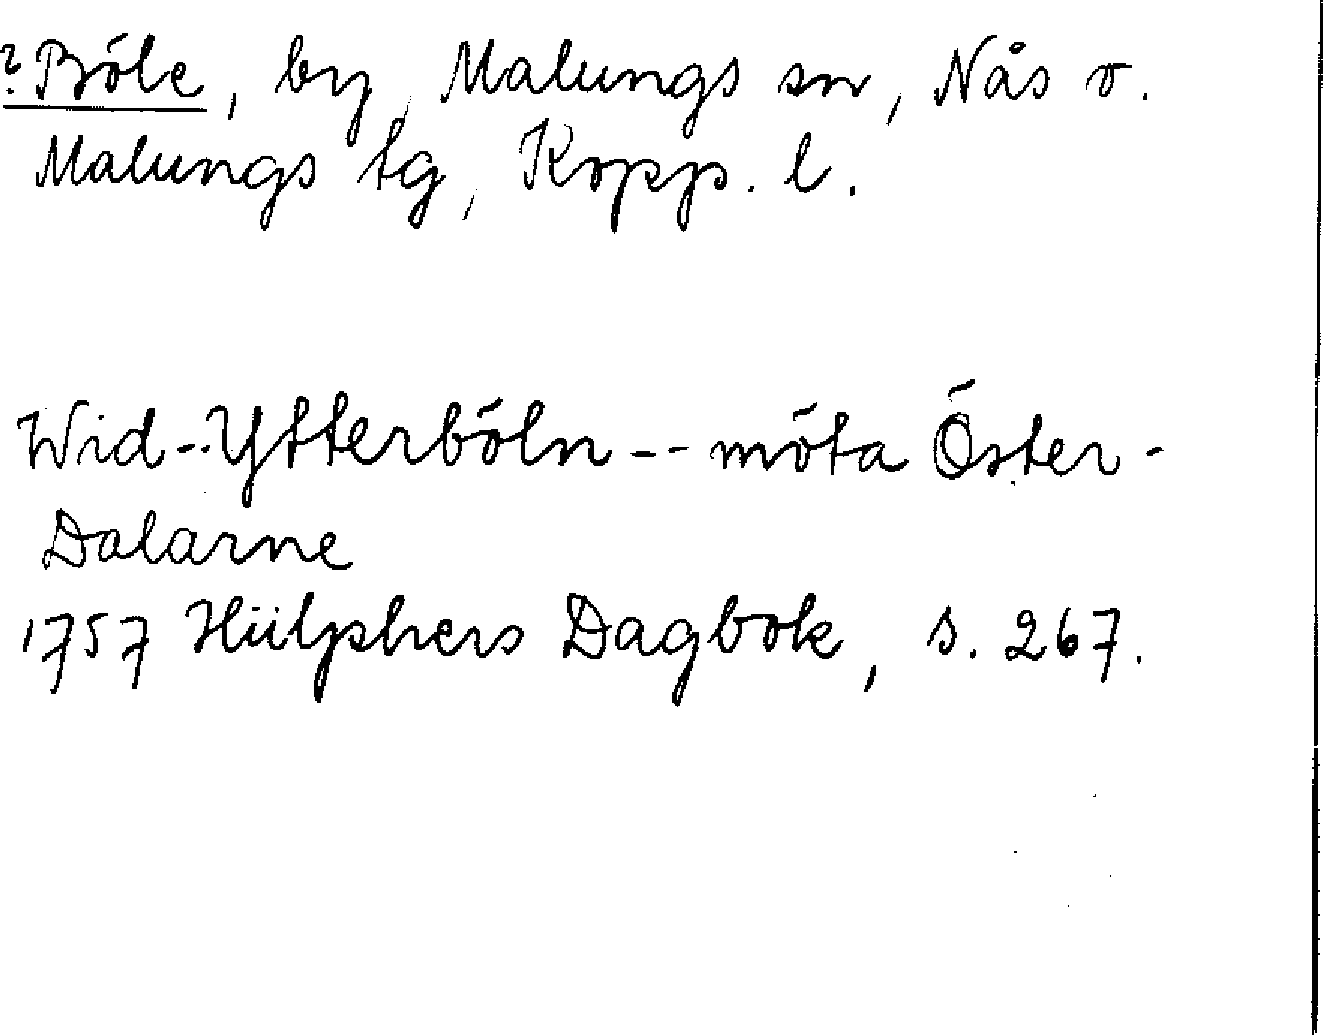 ? Böle, by, Malungs sn, Nås o.
Malungs tg, Kopp. l.
Wid--Ytterböln--möta Öster-
Dalarne
1757 Hülphers Dagbok, s. 267.